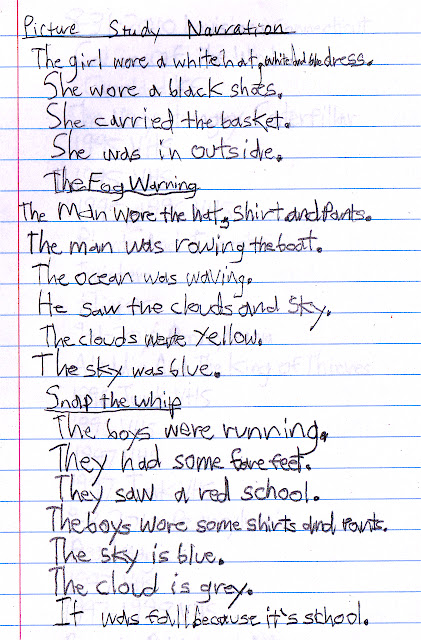 Picture Study Narration
The girl wore a white hat, white and blue dress.
She wore a black shoes.
She carried the basket.
She was in outside.
The Fog Warning
The Man wore the hat, shirt and Pants.
The man was rowing the boat.
The ocean was waving.
He saw the clouds and sky.
The clouds were yellow.
The sky was blue.
Snap the whip
The boys were running.
They had some bare feet.
They saw a red school.
The boys wore some shirts and Pants.
The sky is blue.
The cloud is grey.
It was fall because it's school.